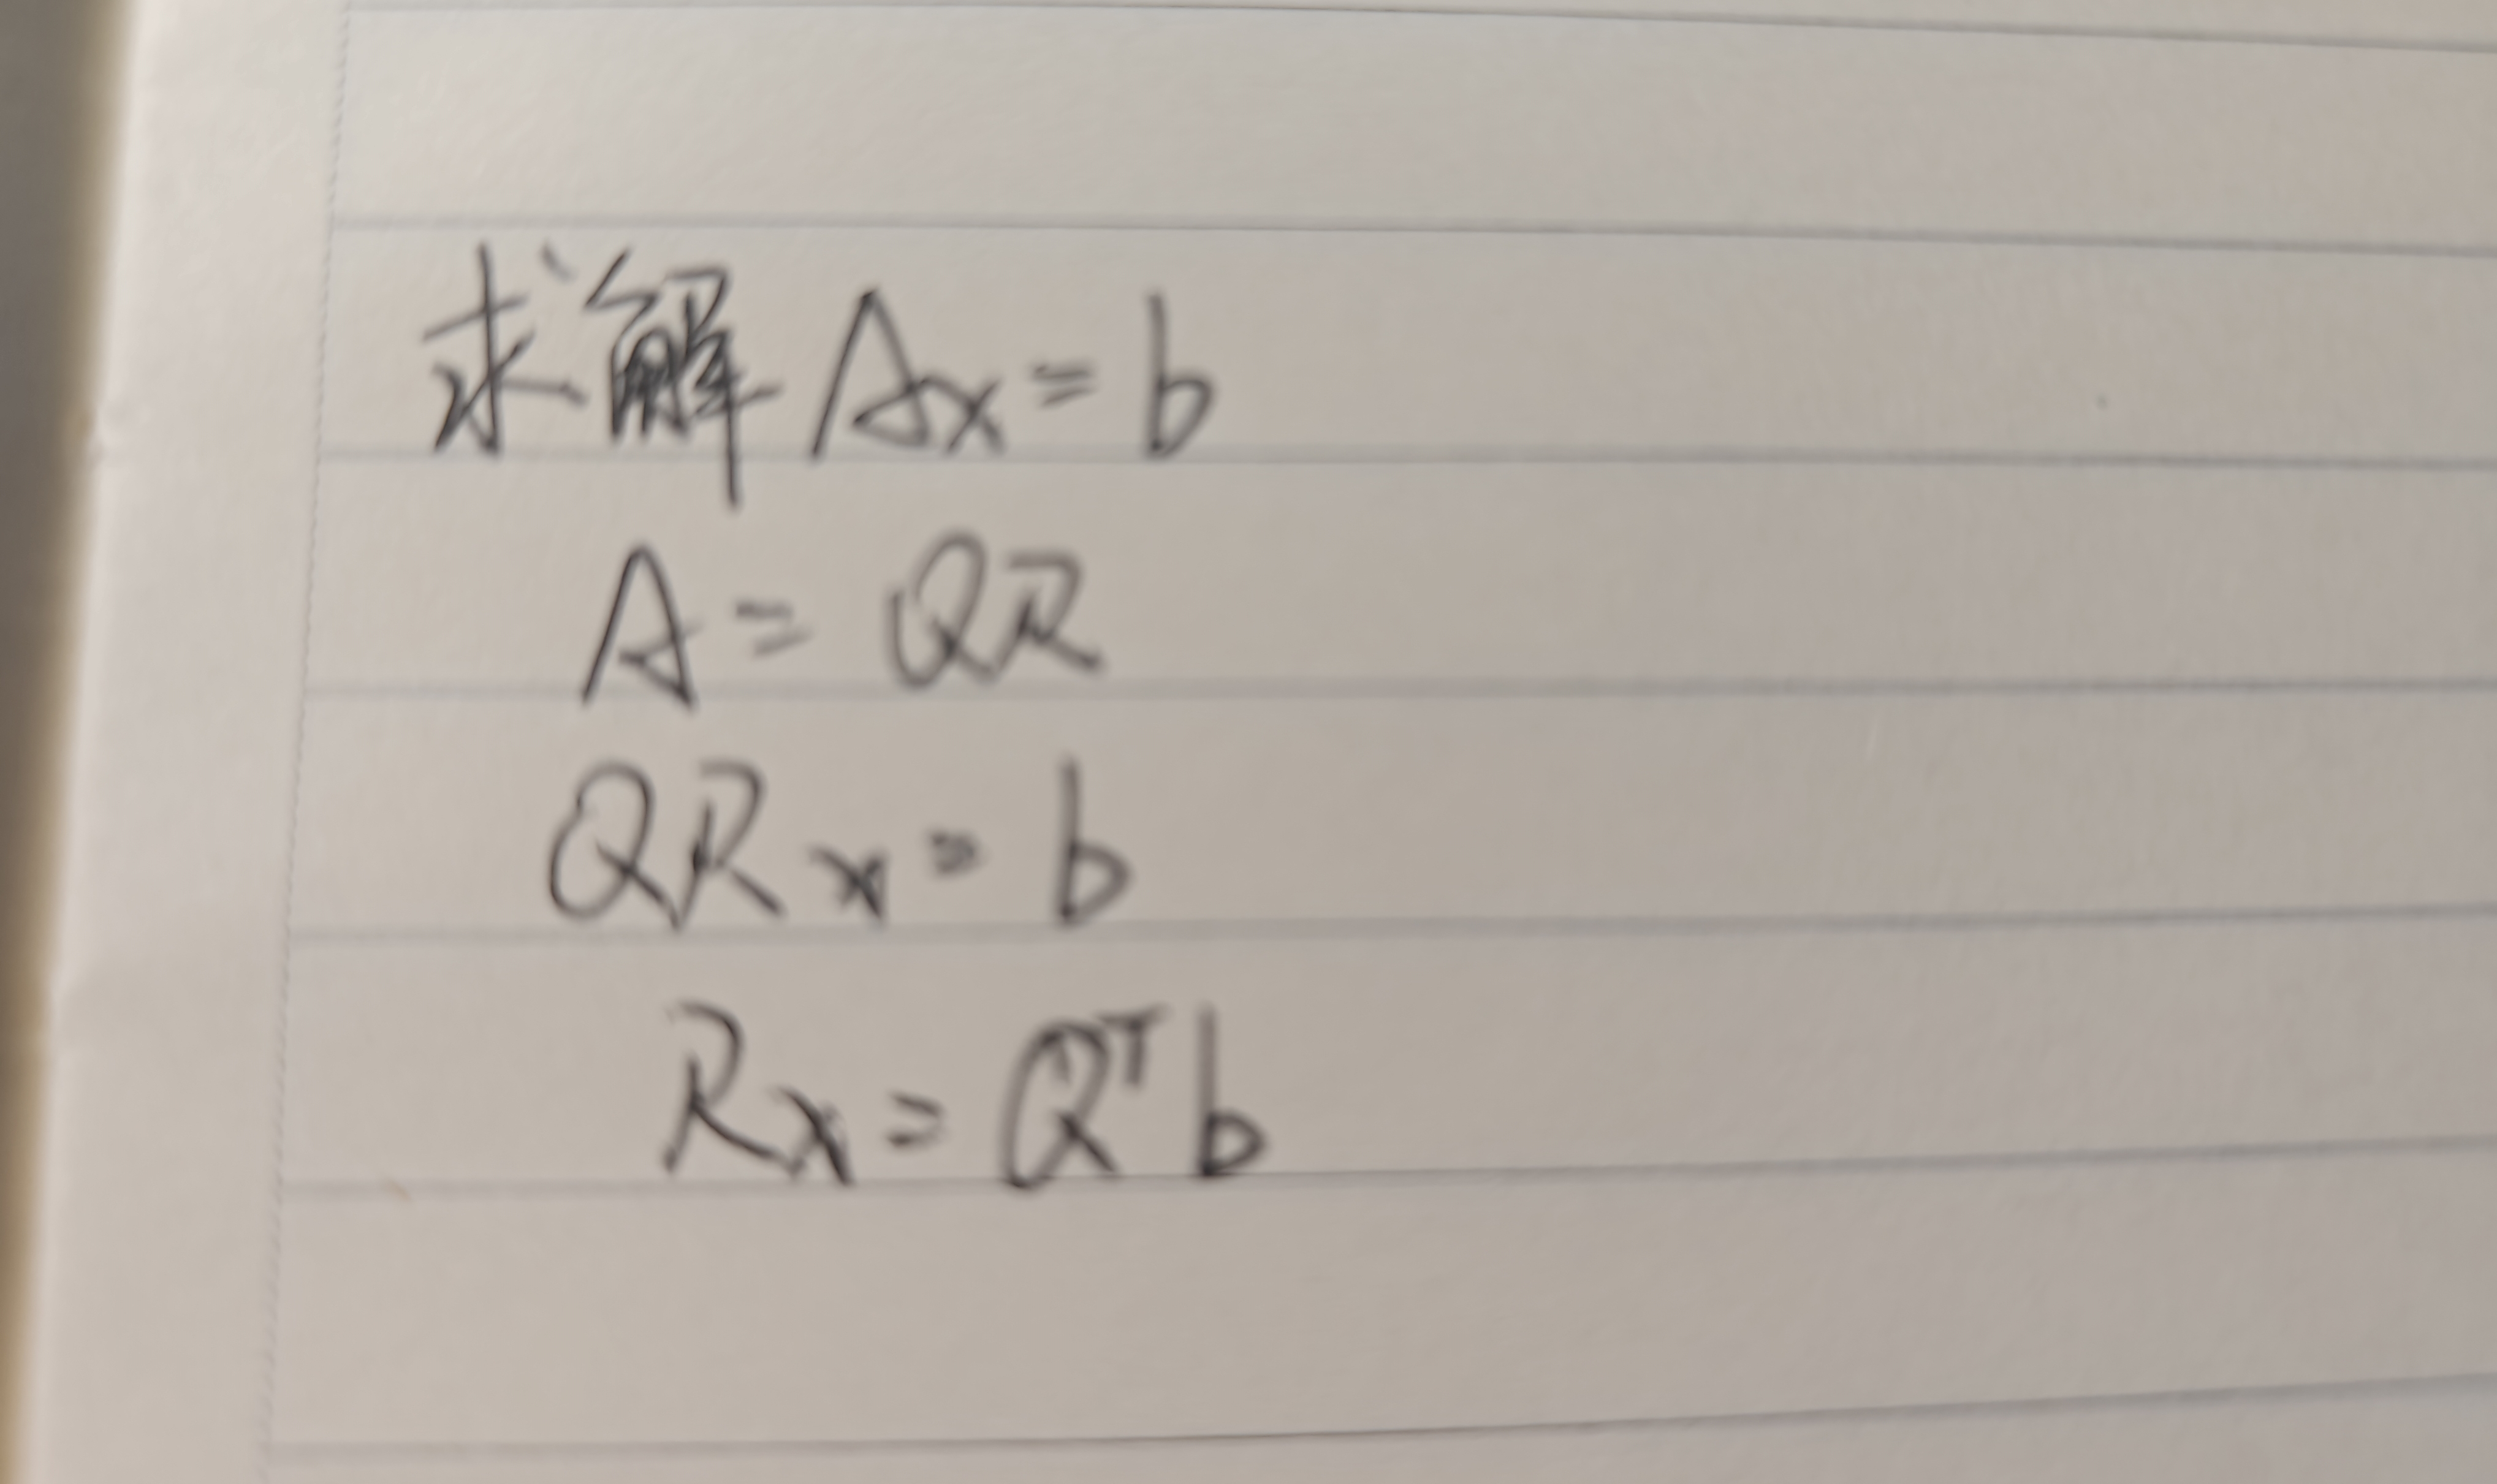 求解 Ax = b
A = QR
QRx = b
Rx = Qᵀb